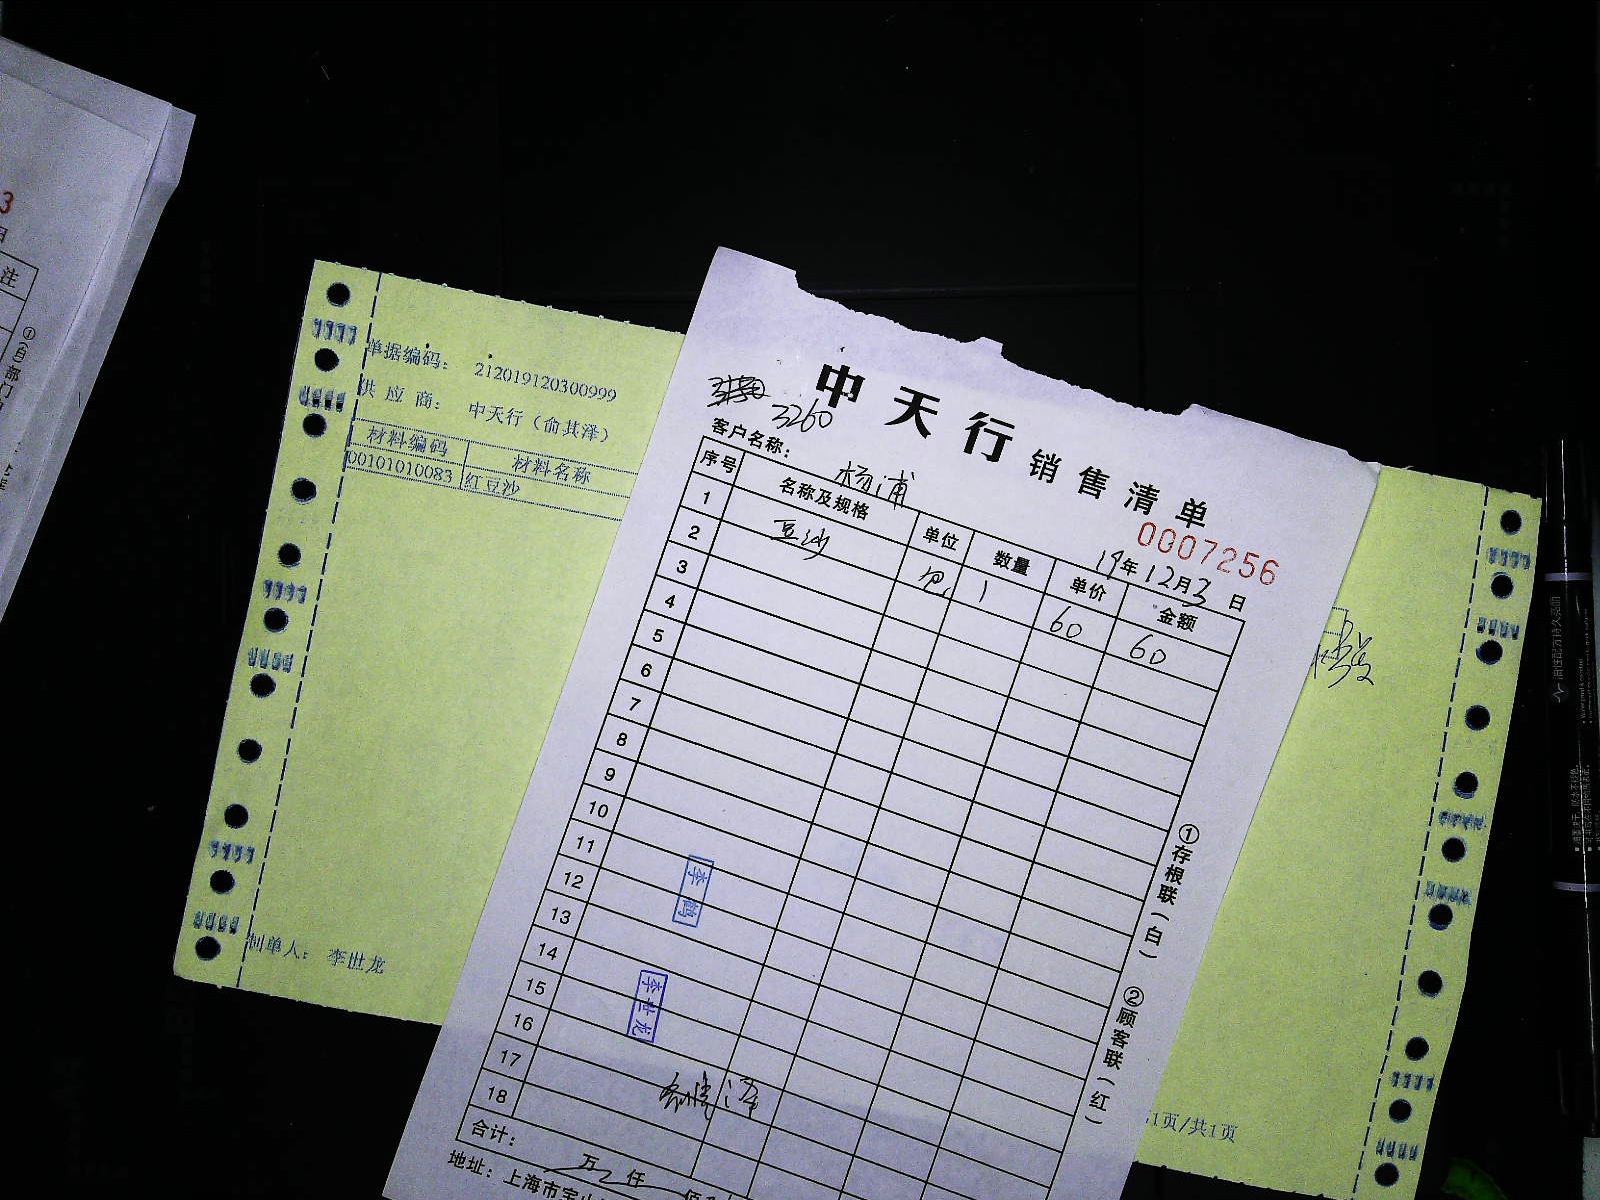 3
日
注
①(白)部门
单据编码： 212019120300999
供 应 商： 中天行（俞其泽）
材料编码 材料名称
00101010083 红豆沙
制单人： 李世龙
1页/共1页
3260
中天行 销售清单
0007256
客户名称： 杨浦
19年12月3日
序号 名称及规格 单位 数量 单价 金额
1 豆沙 包 1 60 60
2
3
4
5
6
7
8
9
10
11
12
13
14
15
16
17
18
李鹤
李世龙
合计： 万 仟
地址：上海市宝山
①存根联(白) ②顾客联(红)